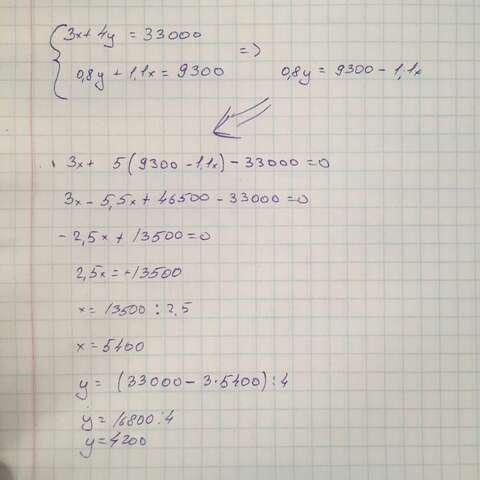 3x + 4y = 33000
=>
0,8y + 1,1x = 9300 0,8y = 9300 - 1,1x
3x + 5(9300 - 1,1x) - 33000 = 0
3x - 5,5x + 46500 - 33000 = 0
- 2,5x + 13500 = 0
2,5x = -13500
x = 13500 : 2,5
x = 5400
y = (33000 - 3·5400) : 4
y = 16800 : 4
y = 4200